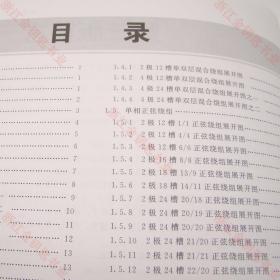 目 录
1.4.1 2极12槽单双层混合绕组展开图
1.4.2 2极12槽单双层混合绕组展开图
1.4.3 4极24槽单双层混合绕组展开图之一
1.4.4 4极24槽单双层混合绕组展开图之二
1.5 单相正弦绕组
1.5.1 2极12槽1/1正弦绕组展开图
1.5.2 2极12槽4/4正弦绕组展开图
1.5.3 2极12槽6/6正弦绕组展开图
1.5.4 2极16槽8/8正弦绕组展开图
1.5.5 2极18槽13/9正弦绕组展开图
1.5.6 2极18槽14/11正弦绕组展开图
1.5.7 2极24槽20/18正弦绕组展开图
1.5.8 2极24槽20/19正弦绕组展开图
1.5.9 2极24槽20/20正弦绕组展开图
1.5.10 2极24槽21/20正弦绕组展开图
1.5.11 2极24槽21/21正弦绕组展开图
1.5.12 2极24槽22/20正弦绕组展开图
2
2
3
3
4
5
6
7
8
9
10
11
12
12
13